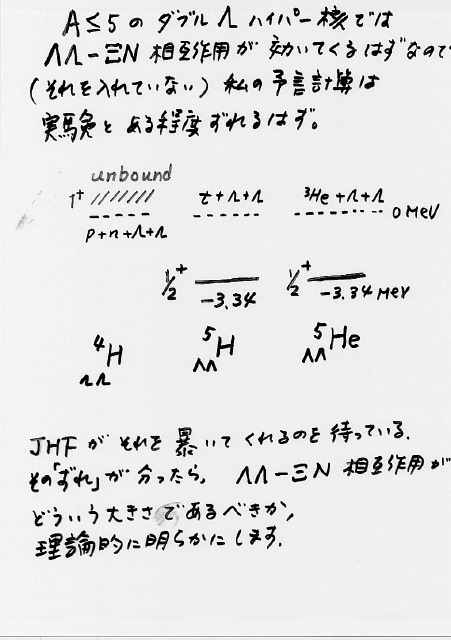 A≤5 の ダブル Λ ハイパー核では
ΛΛ－ΞN 相互作用が 効いてくるはずなので
(それを入れていない) 私の予言計算は
実験と ある程度 ずれるはず。
unbound
1⁺ t+Λ+Λ ³He+Λ+Λ
0 MeV
p+n+Λ+Λ
1/2⁺ 1/2⁺
-3.34 -3.34 MeV
⁴H ⁵H ⁵He
ΛΛ ΛΛ ΛΛ
JHF が それを 暴いて くれるのを 待っている.
その「ずれ」が 分ったら, ΛΛ－ΞN 相互作用が
どういう大きさであるべきか,
理論的に明らかにします.